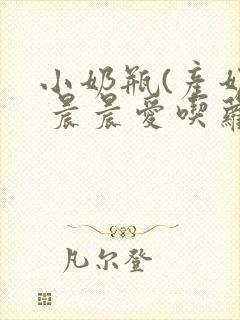 小奶瓶(產奶
晨晨愛喫蘿
凡尔登